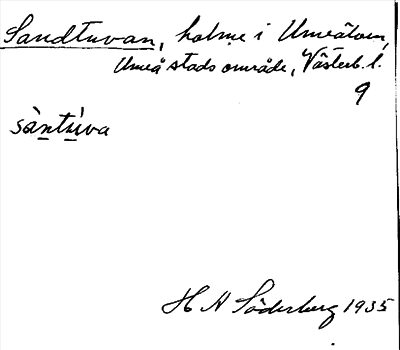 Sandtuvan, holme i Umeälven,
Umeå stads område, Västerb. l.
9
sàntúva
H N Söderberg 1935